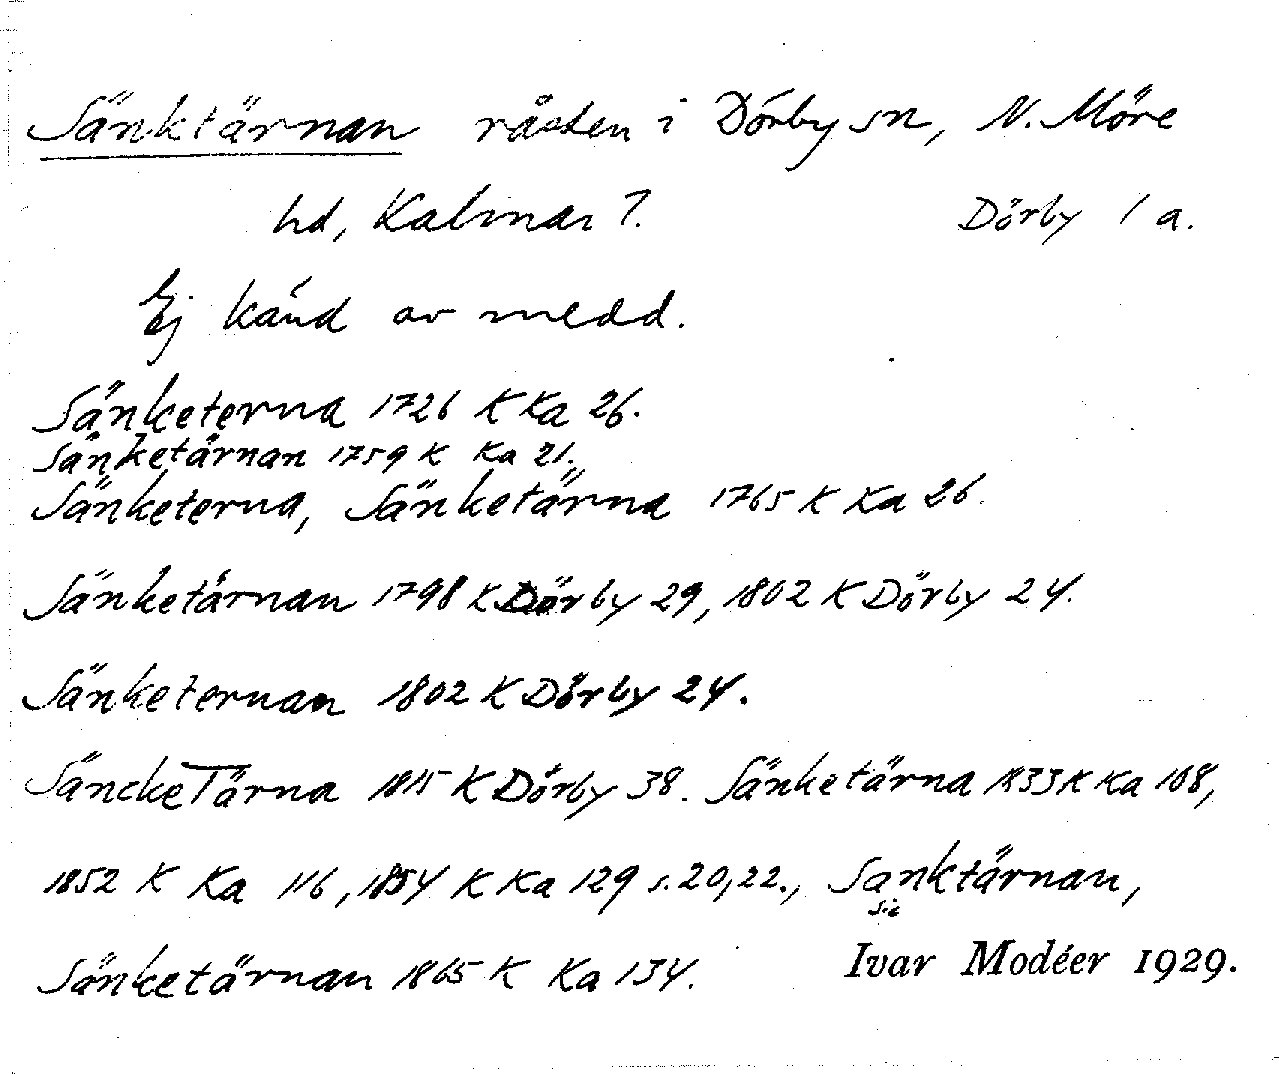 Sänktärnan råsten i Dörby sn, N. Möre
hd, Kalmar l. Dörby 1 a.
Ej känd av medd.
Sänketerna 1726 K Ka 26.
Sänketärnan 1759 K Ka 21.
Sänketerna, Sänketärna 1765 K Ka 26.
Sänketärnan 1798 K Dörby 29, 1802 K Dörby 24.
Sänketernan 1802 K Dörby 24.
SänckeTärna 1815 K Dörby 38. Sänketärna 1833 K Ka 108,
1852 K Ka 116, 1854 K Ka 129 s. 20, 22., Sanktärnan,
sic
Sänketärnan 1865 K Ka 134. Ivar Modéer 1929.